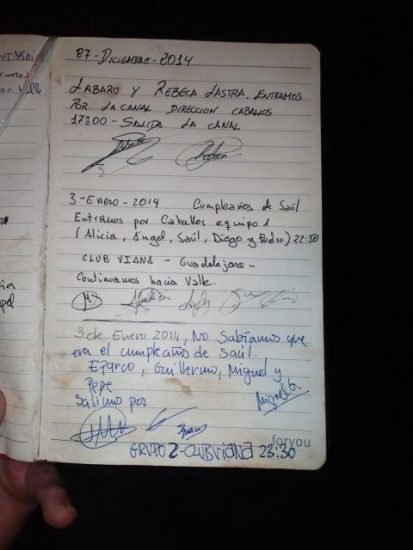 27-Diciembre-2014
Labaro y Rebeca Lastra. Entramos
Por La Canal Direccion Caballos
17:00 - Salida La Canal
3-Enero-2014 Cumpleaños de Saúl
Entramos por Caballos equipo 1
(Alicia, Angel, Saúl, Diego y Pedro) 22:30
CLUB VIANA - Guadalajara -
Continuamos hacia Valle.
3 de Enero 2014, No Sabíamos que
era el cumpleaños de Saúl.
Guillermo, Miguel y
Pepe
Salimos por
Miguel G.
foryou
GRUPO 2-CLUB VIANA 23:30